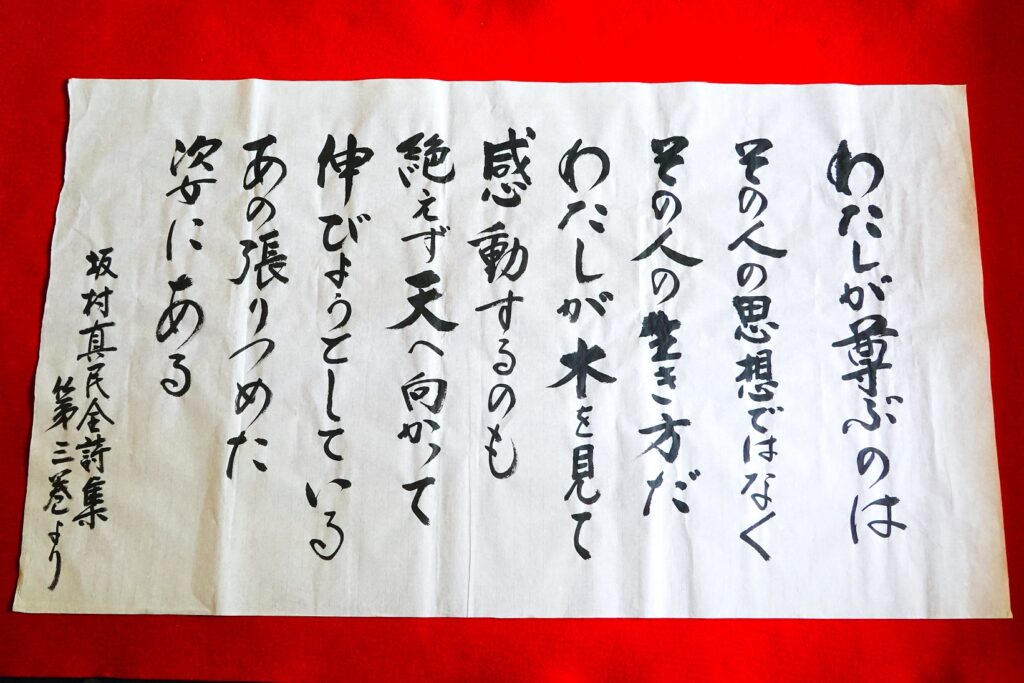 わたしが尊ぶのは
その人の思想ではなく
その人の生き方だ
わたしが木を見て
感動するのも
絶えず天へ向かって
伸びようとしている
あの張りつめた
姿にある
坂村真民全詩集
第三巻より